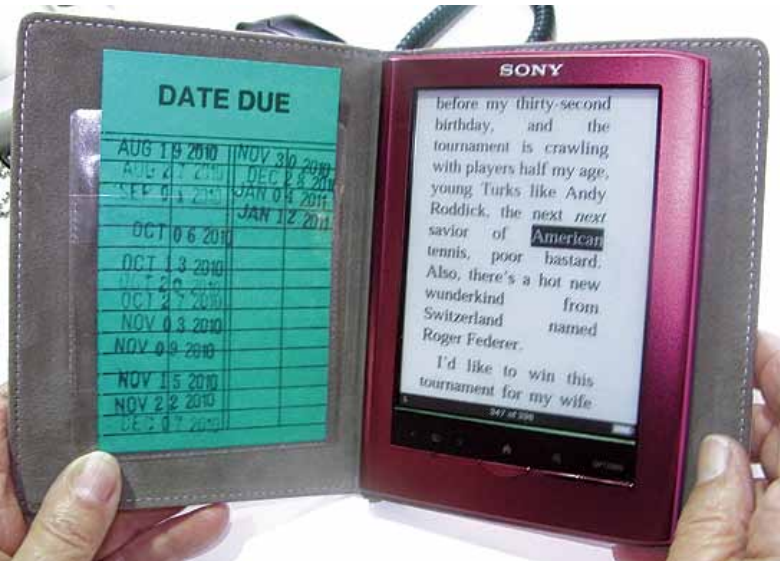 DATE DUE
AUG 19 2010
AUG 27 2010
SEP 01 2010
OCT 06 2010
OCT 13 2010
OCT 20 2010
OCT 27 2010
NOV 03 2010
NOV 09 2010
NOV 15 2010
NOV 22 2010
DEC 07 2010
NOV 30 2010
DEC 28 2010
JAN 04 2011
JAN 12 2011
SONY
before my thirty-second
birthday, and the
tournament is crawling
with players half my age,
young Turks like Andy
Roddick, the next next
savior of American
tennis, poor bastard.
Also, there's a hot new
wunderkind from
Switzerland named
Roger Federer.
I'd like to win this
tournament for my wife
OPTIONS